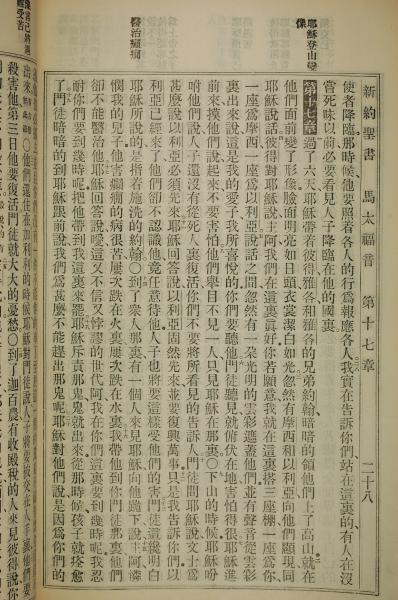 新約聖書 馬太福音 第十七章 二十八
使者降臨那時候、他要照着各人的行爲報應各人我實在告訴你們、站在這裏的、有人在沒
嘗死味以前必要看見人子降臨在他的國裏
第十七章 過了六天耶穌帶着彼得雅各和雅各的兄弟約翰暗暗的領他們上了高山就在
他們面前變了形像臉面明亮如日頭衣裳潔白如光忽然有摩西和以利亞向他們顯現同
耶穌說話彼得對耶穌說主阿我們在這裏眞好你若願意我就在這裏搭三座棚一座爲你
一座爲摩西一座爲以利亞說話之間忽然有一朵光明的雲彩遮蓋他們並有聲音從雲彩
裏出來說這是我的愛子我所喜悅的你們要聽他門徒聽見就俯伏在地害怕得很耶穌進
前來摸他們說起來不要害怕他們舉目不見一人只見耶穌在那裏〇下山的時候耶穌吩
咐他們說人子還沒有從死人裏復活你們不要將所看見的告訴人門徒問耶穌說文士爲
甚麽說以利亞必須先來耶穌回答說以利亞固然先來並要復興萬事只是我告訴你們以
利亞已經來了他們卻不認識他竟任意待他人子也將要這樣受他們的害門徒這纔明白
耶穌所說的是指着施洗的約翰〇到了衆人那裏有一個人來見耶穌向他跪下說主阿憐
憫我的兒子他害癲癇的病很苦屢次跌在火裏屢次跌在水裏我帶他到你門徒那裏他們
卻不能醫治他耶穌回答說噯這又不信又悖謬的世代阿我在你們這裏要到幾時呢我忍
耐你們要到幾時呢把他帶到我這裏來罷耶穌斥責那鬼鬼就出來從那時候孩子就痊愈
了門徒暗暗的到耶穌跟前說我們爲甚麽不能趕出那鬼呢耶穌對他們說是因爲你們的
耶穌登山變
像
醫治癲癇
出來
他們還住在加利利的時候耶穌對門徒說人子將要被交在人手裏他們要
殺害他第三日他要復活門徒就大大的憂愁〇到了迦百農有收殿稅的人來見彼得說你